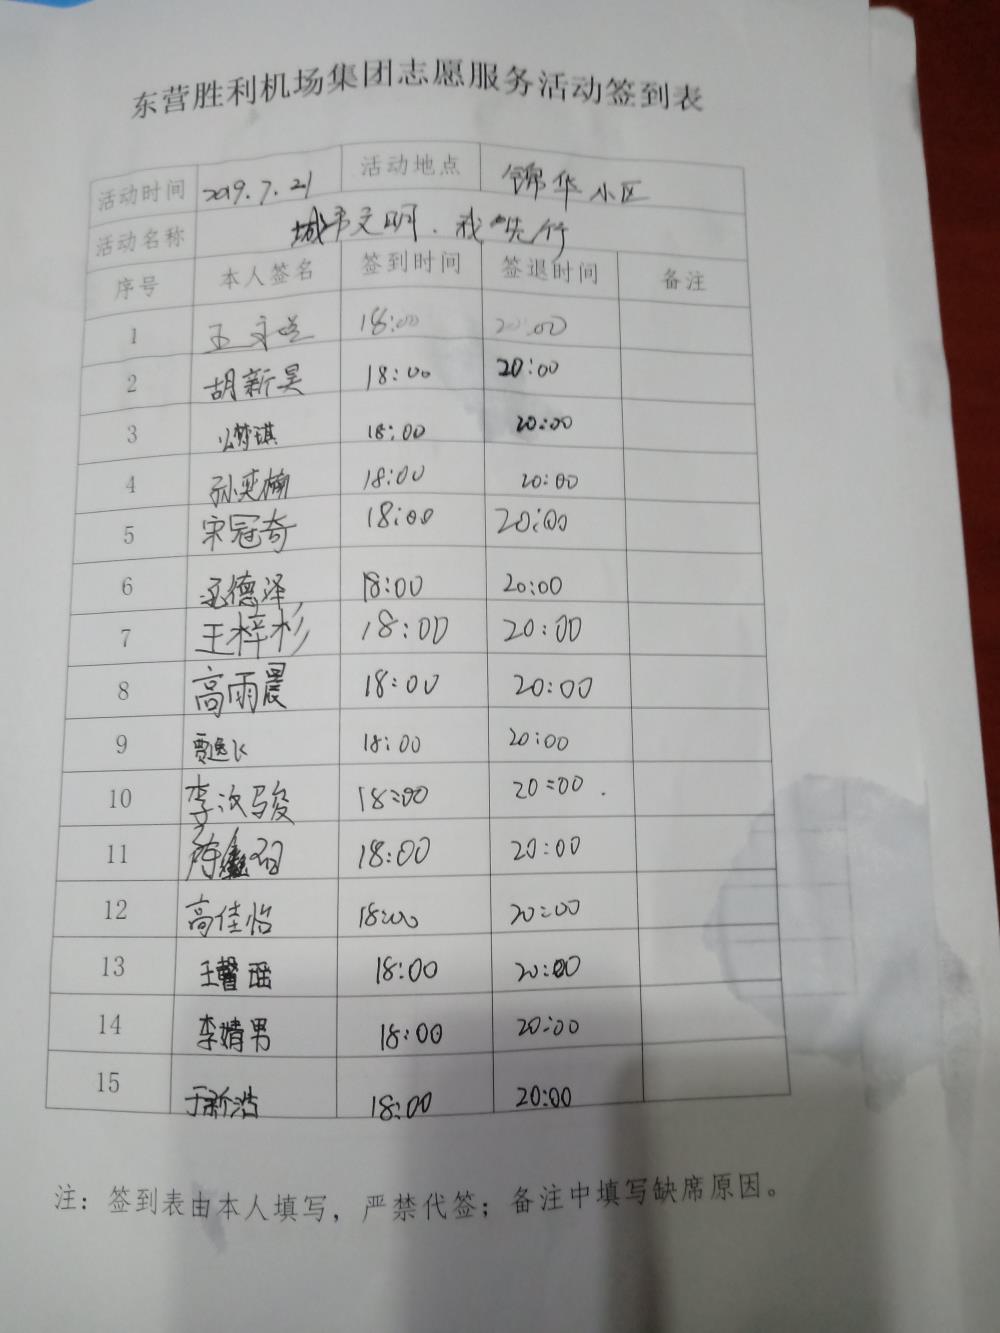 东营胜利机场集团志愿服务活动签到表
活动时间 2019.7.21 活动地点 锦华小区
活动名称 城市文明.我先行
序号 本人签名 签到时间 签退时间 备注
1 王 18:00 20:00
2 胡新昊 18:00 20:00
3 梦琪 18:00 20:00
4 孙奕楠 18:00 20:00
5 宋冠奇 18:00 20:00
6 德泽 18:00 20:00
7 王梓杉 18:00 20:00
8 高雨晨 18:00 20:00
9 贾逸飞 18:00 20:00
10 李汶骏 18:00 20:00
11 18:00 20:00
12 高佳怡 18:00 20:00
13 王馨瑶 18:00 20:00
14 李婧男 18:00 20:00
15 于新浩 18:00 20:00
注：签到表由本人填写，严禁代签；备注中填写缺席原因。